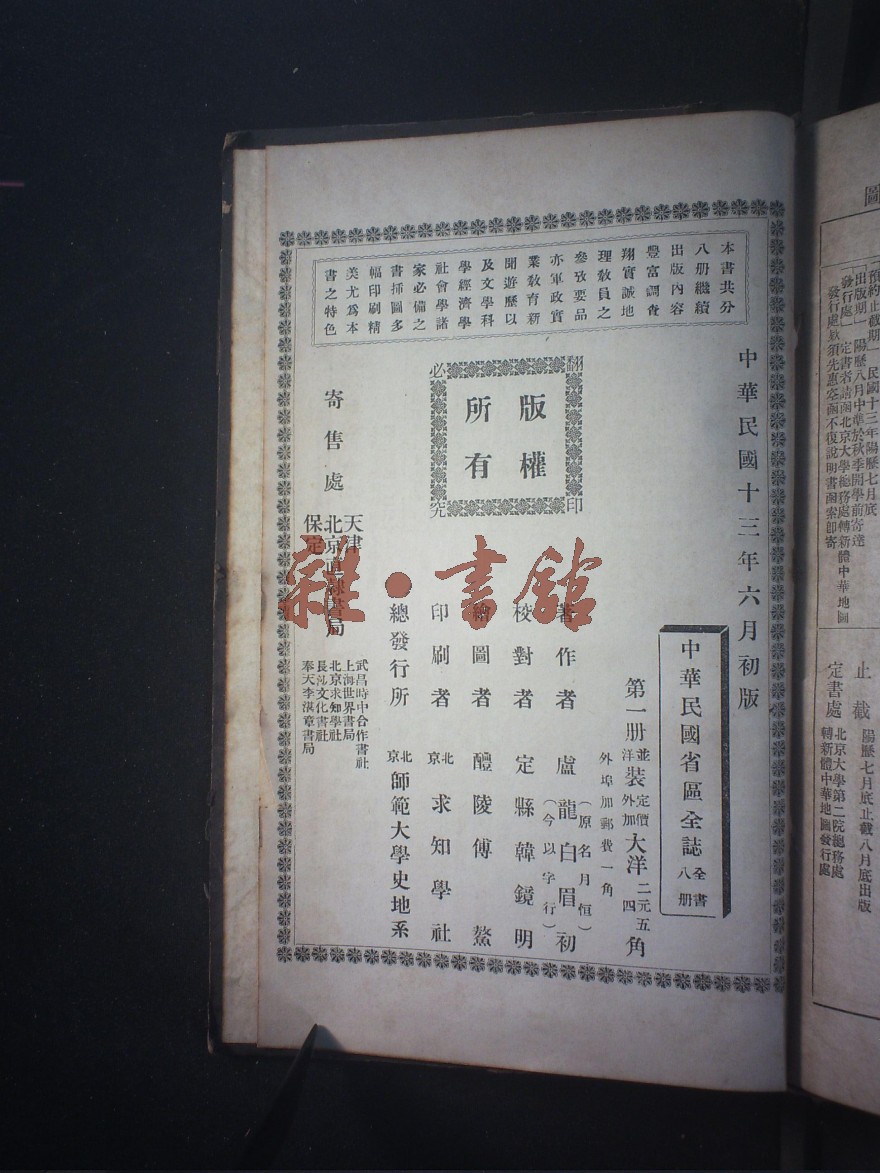 本書共分
八册繼續
出版內容
豐富調查
翔實誠地
理教員之
參攷要品
亦軍政實
業教育新
聞遊歷以
及文學科
學經濟學
社會學諸
家必備之
書插圖多
幅印刷精
美尤爲本
書之特色
中華民國十三年六月初版
版權
所有
翻印
必究
中華民國省區全誌
全書
八册
第一册
並裝定價大洋二元五角
洋裝外加大洋四角
外埠加郵費一角
著作者 盧龍白眉初
(原名月恒)
(今以字行)
校對者 定縣韓鏡明
繪圖者 醴陵傅鰲
印刷者 北京求知學社
總發行所 北京師範大學史地系
寄售處
天津
北京直隸書局
保定
武昌時中合作書社
上海世界書局
北京求知學社
長沙文化書社
奉天李湛章書局
雜·書館
圖
預約止截期 民國十三年陽歷七月底
出版期 陽歷八月中華於秋季開學前寄達
發行處 定書者請函北京大學總務處轉新體中華地圖
發行處欵須先惠空函不復說明書函索卽寄
止截 陽歷七月底止截八月底出版
定書處 北京大學第二院總務處
轉新體中華地圖發行處